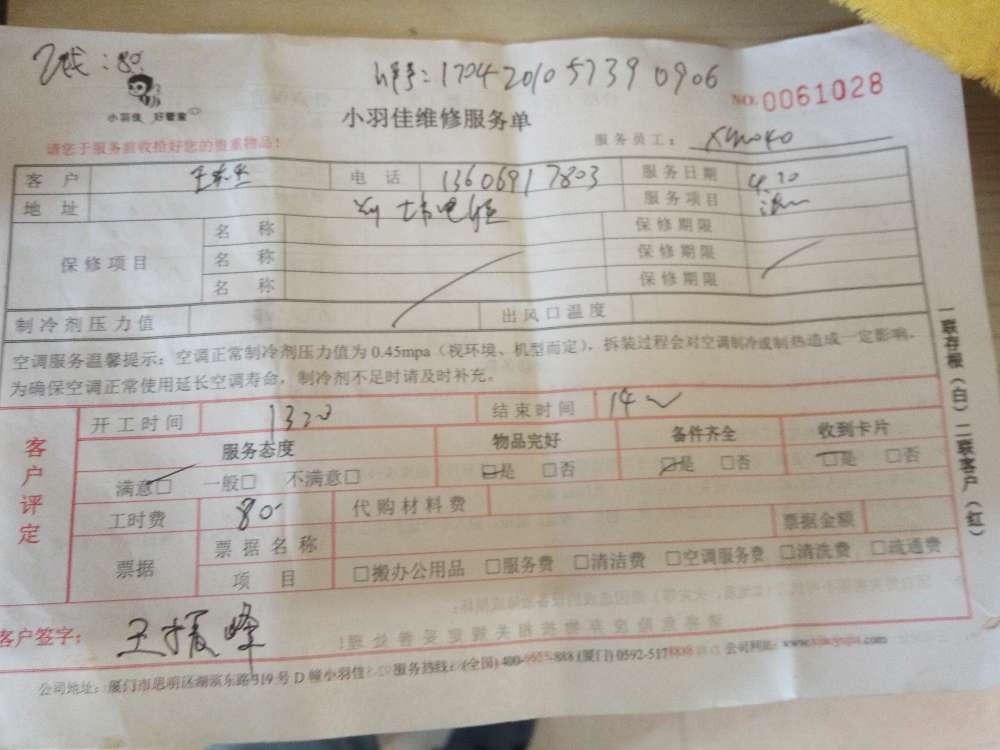 :80
1704 2010 5739 0906
小羽佳 好管家
小羽佳维修服务单
NO.0061028
请您于服务前收捡好您的贵重物品!
服务员工:
客户 电话 13606917803 服务日期 4.20
地址 服务项目
保修项目 名称 保修期限
名称 保修期限
名称 保修期限
制冷剂压力值 出风口温度
空调服务温馨提示:空调正常制冷剂压力值为0.45mpa(视环境、机型而定),拆装过程会对空调制冷或制热造成一定影响,
为确保空调正常使用延长空调寿命,制冷剂不足时请及时补充。
一联存根(白) 二联客户(红)
客户评定
开工时间 1320 结束时间 14
服务态度 物品完好 备件齐全 收到卡片
满意□ 一般□ 不满意□ □是 □否 □是 □否 □是 □否
工时费 80 代购材料费
票据 票据名称 票据金额
项目 □搬办公用品 □服务费 □清洁费 □空调服务费 □清洗费 □疏通费
客户签字: 王振峰
公司地址:厦门市思明区湖滨东路319号D幢小羽佳 服务热线:(全国)400- -888(厦门)0592-517 公司网址:www.xiaoyujia.com